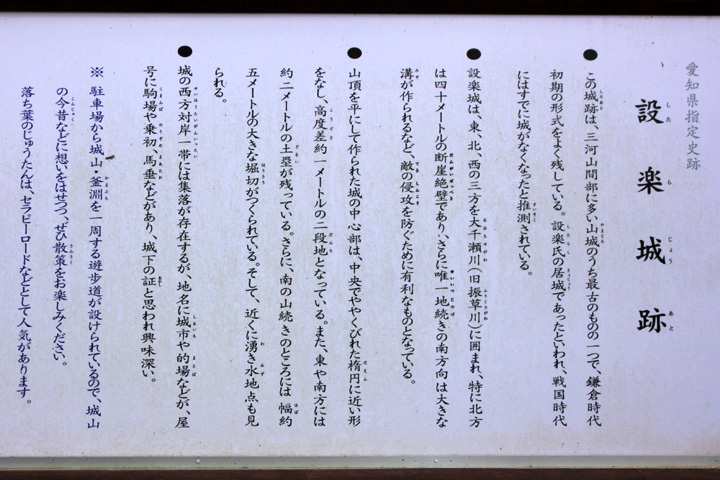 愛知県指定史跡
設楽城跡
● この城跡は、三河山間部に多い山城のうち最古のものの一つで、鎌倉時代
初期の形式をよく残している。設楽氏の居城であったといわれ、戦国時代
にはすでに城がなくなったと推測されている。
● 設楽城は、東、北、西の三方を大千瀬川（旧振草川）に囲まれ、特に北方
は四十メートルの断崖絶壁であり、さらに唯一地続きの南方向は大きな
溝が作られるなど、敵の侵攻を防ぐために有利なものとなっている。
● 山頂を平にして作られた城の中心部は、中央でややくびれた楕円に近い形
をなし、高度差約一メートルの二段地となっている。また、東や南方には
約二メートルの土塁が残っている。さらに、南の山続きのところには 幅約
五メートルの大きな堀切がつくられている。そして、近くに湧き水地点も見
られる。
● 城の西方対岸一帯には集落が存在するが、地名に城市や的場などが、屋
号に駒場や乗初、馬垂などがあり、城下の証と思われ興味深い。
※ 駐車場から城山・釜淵を一周する遊歩道が設けられているので、城山
の今昔などに想いをはせつつ、ぜひ散策をお楽しみください。
落ち葉のじゅうたんは、セラピーロードなどとして人気があります。